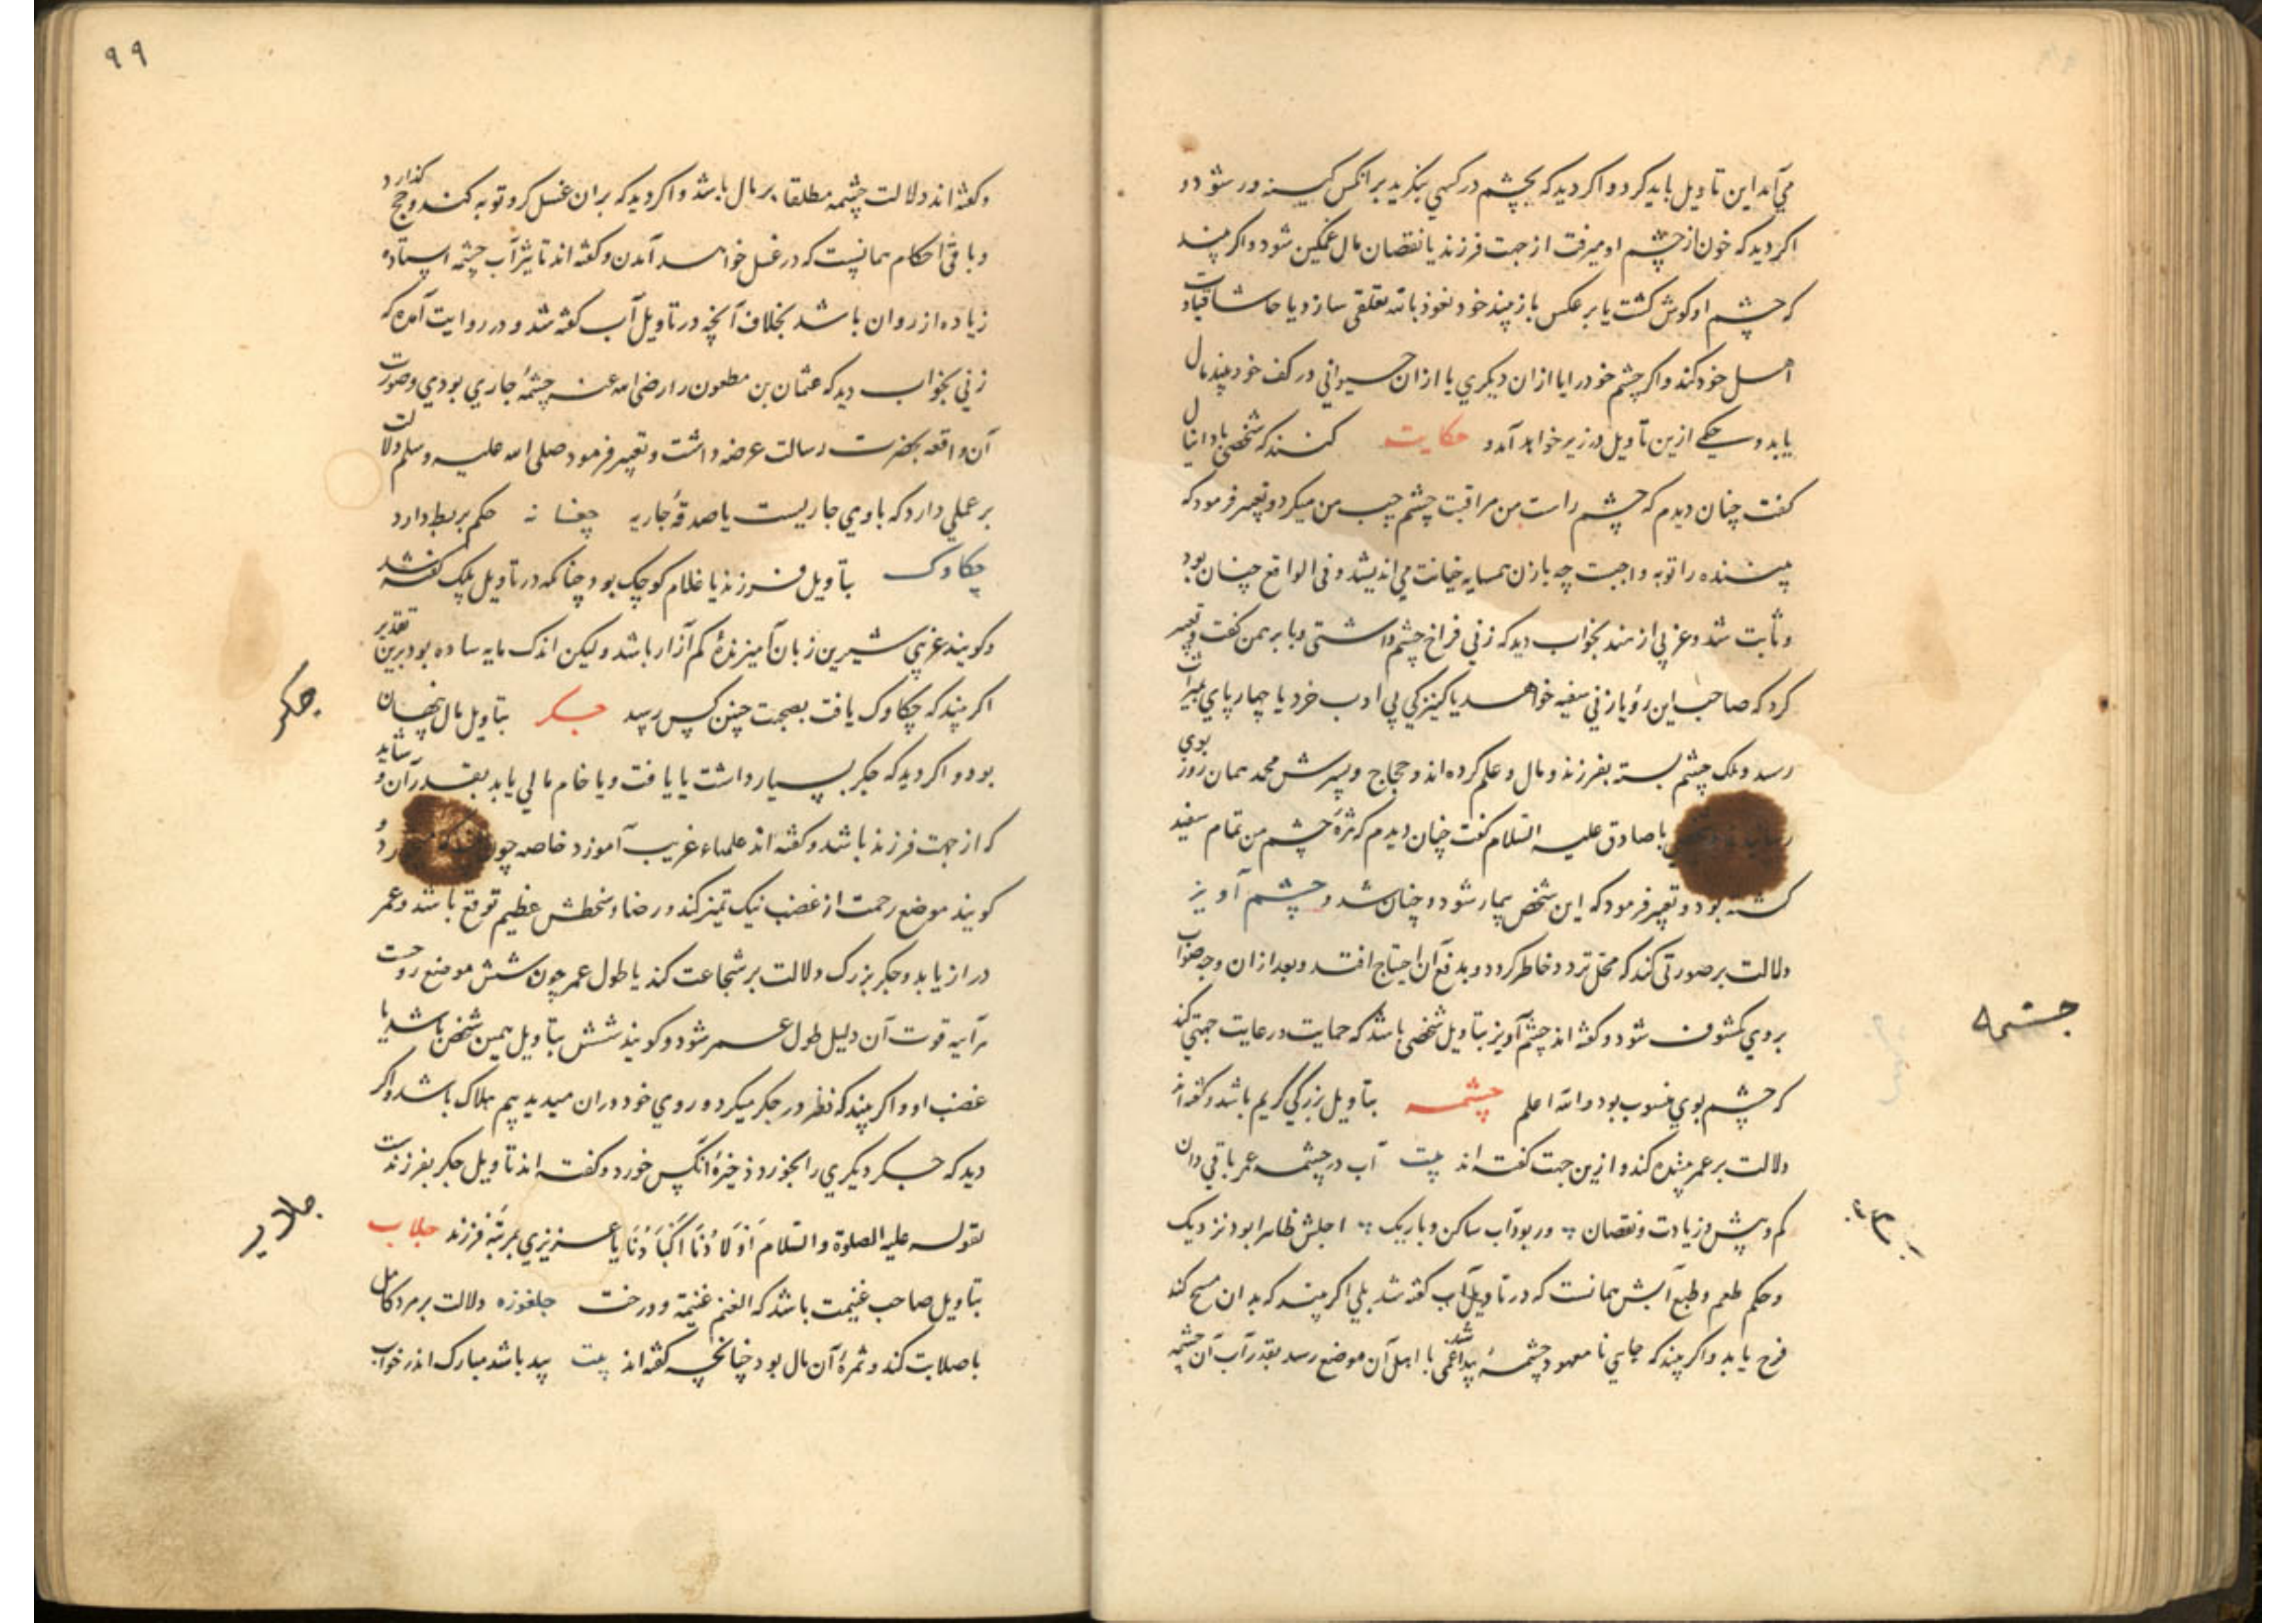 می‌آمد این تاویل باید کرد و اگر دید که بچشم در کسی بنگرید بر آنکس کینه ور شود و
اگر دید که خون از چشم او میرفت از جهت فرزند یا نقصان مال غمگین شود و اگر بیند
که چشم او کوش کشت یا بر عکس باز بیند خود نعوذ بالله تعلقی سازد یا حاشا قیادت
اهل خود کند و اگر چشم خود را یا از ان دیگری یا از ان حیوانی در کف خود بیند مال
یابد و یکی ازین تاویل در زیر خواهد آمد و حکایت کنند که شخصی با دانیال
کفت چنان دیدم که چشم راست من مراقبت چشم چپ من میکرد و تعبیر فرمود که
بیننده را توبه واجبست چه با زن همسایه خیانت می‌اندیشد و فی الواقع چنان بود
و ثابت شد و عزبی از هند بخواب دید که زنی فراخ چشم داشتی و با برهمن کفت و تعبیر
کرد که صاحب این رؤیا زنی سفیه خواهد یا کنیزکی بی ادب خرد یا چهارپای بمیراث
رسد و ملک چشم بسته بفرزند و مال و علم کرده‌اند و حجاج و پسرش محمد همان روز بوی
با صادق علیه السلام کفت چنان دیدم که چشم من تمام سفید
کشته بود و تعبیر فرمود که این شخص بیمار شود و چنان شد و چشم آویز
دلالت بر صورتی کند که محل تردد خاطر کردد و بدفع آن احتیاج افتد و بعد از ان وجه صواب
بروی مکشوف شود و کفته اند چشم آویز بتاویل شخصی باشد که حمایت و رعایت جهتی کند
که چشم بوی منسوب بود والله اعلم چشمه بتاویل بزرگی کریم باشد و کفته اند
دلالت بر عمر بیننده کند و ازین جهت کفته اند بیت آب در چشمه عمر باقی دان
کم و بیش و زیادت و نقصان ور بود آب ساکن و باریک اجلش ظاهرا بود نزدیک
و حکم طعم و طبع آبش همانست که در تاویل آب کفته شد بلی اگر بیند که بدان مسح کند
فرح یابد و اگر بیند که جایی نامعهود چشمهٔ پیدا شد غمی با اهل آن موضع رسد بقدر آب آن چشمه
چشمه
۹۹
و کفته اند دلالت چشمه مطلقا بر مال باشد و اگر دید که بران غسل کرد توبه کند و حج گذارد
و باقی احکام همانست که در غسل خواهد آمدن و کفته اند تاثیر آب چشمه ایستاده
زیاده از روان باشد بخلاف آنچه در تاویل آب کفته شد و در روایت آمده که
زنی بخواب دید که عثمان بن مطعون را رضی الله عنه چشمهٔ جاری بودی و صورت
آن واقعه بحضرت رسالت عرضه داشت و تعبیر فرمود صلی الله علیه وسلم دلالت
بر عملی دارد که باوی جاریست یا صدقهٔ جاریه چغانه حکم بربط دارد
چکاوک بتاویل فرزند یا غلام کوچک بود چنانکه در تاویل پلک کفته شد
و کویند عزبی شیرین زبان آمیزندهٔ کم آزار باشد ولیکن اندک مایه ساده بود برین تقدیر
اگر بیند که چکاوک یافت بصحبت چنین کس رسد جکر بتاویل مال پنهان
بود و اگر دید که جکر بسیار داشت یا یافت و یا خام مالی یابد بقدر آن و شاید
که از جهت فرزند باشد و کفته اند علماء غریب آموزد خاصه چون
کویند موضع رحمت از غضب نیک تمیز کند و رضا و سخطش عظیم توقع باشد و عمر
دراز یابد و جکر بزرک دلالت بر شجاعت کند یا طول عمر چون شش موضع روحست
هرآینه قوت آن دلیل طول عمر شود و کویند شش بتاویل همین شخص باشد یا
غضب او و اگر بیند که نظر در جکر میکرد و روی خود در ان میدید بیم هلاک باشد و اگر
دید که جکر دیگری را بخورد ذخیرهٔ آنکس خورد و کفته اند تاویل جکر بفرزندست
لقوله علیه الصلوة والسلام اَولادُنا اَکبادُنا یا عزیزی بمرتبهٔ فرزند جلاب
بتاویل صاحب غنیمت باشد که الغنم غنیمة و درخت جلغوزه دلالت بر مرد کامل
با صلابت کند و ثمرهٔ آن مال بود چنانچه کفته اند بیت بید باشد مبارک اندر خواب
جکر
جلاب